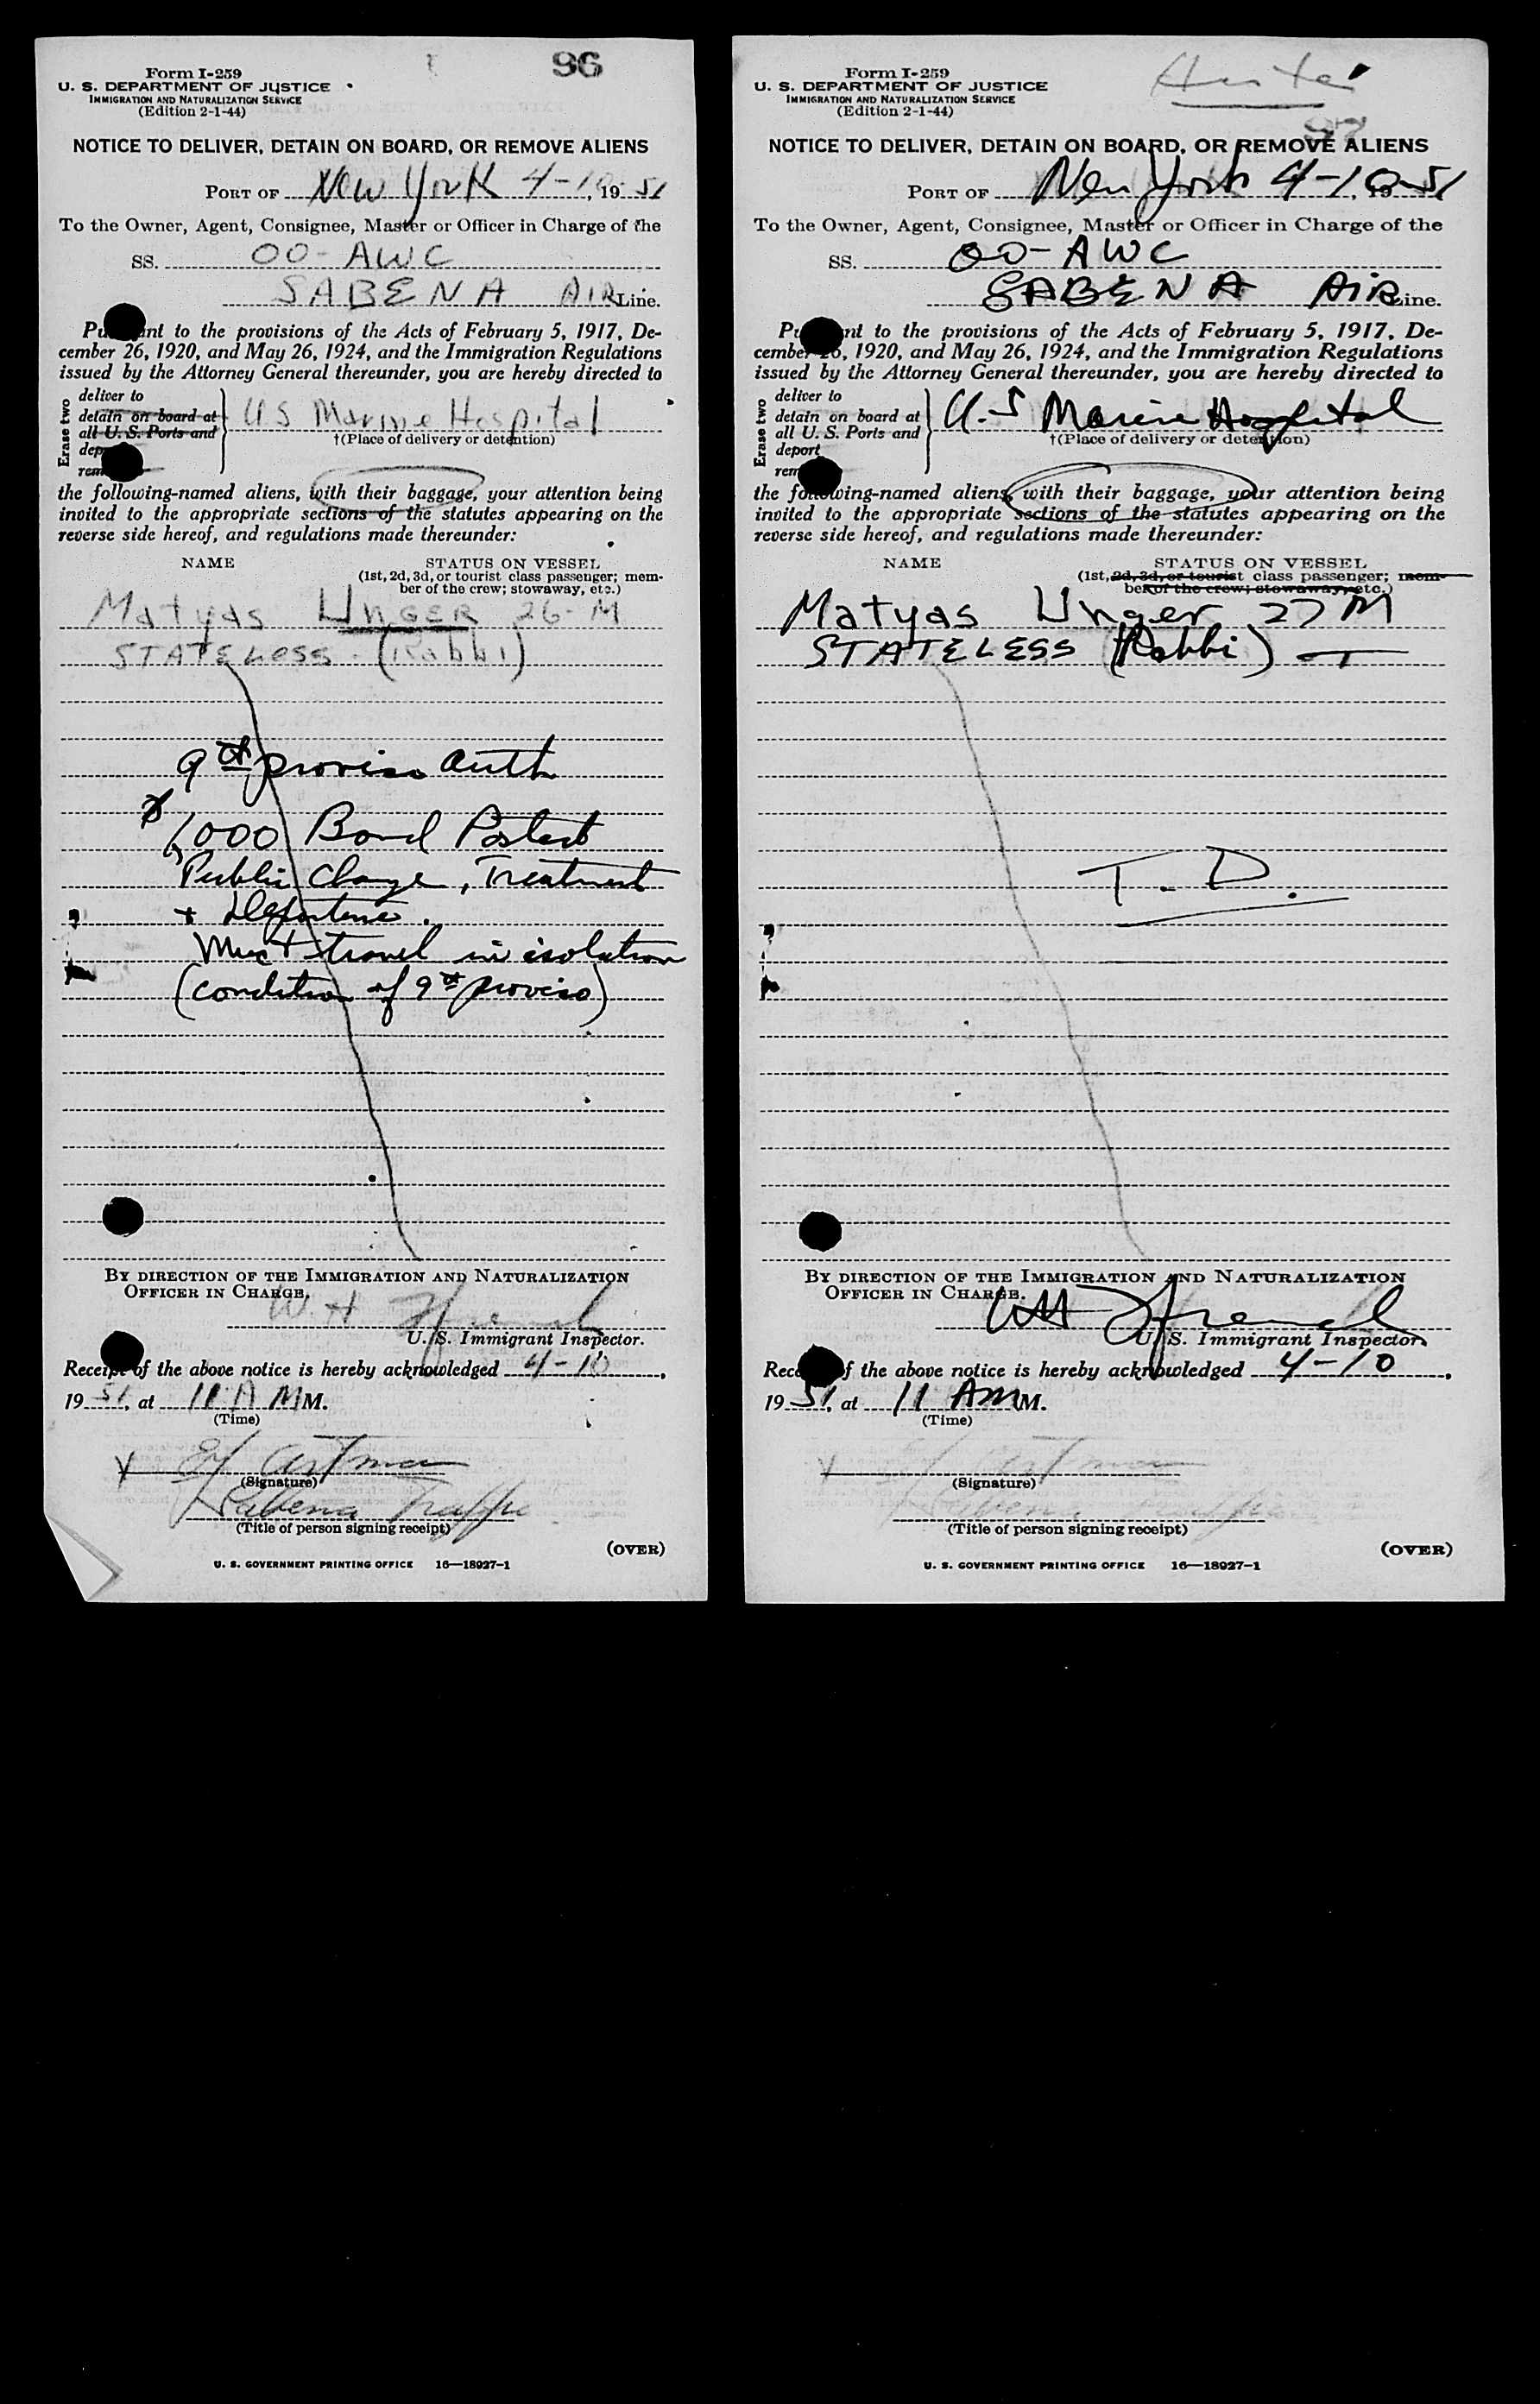 96
Form I-259
U. S. DEPARTMENT OF JUSTICE
IMMIGRATION AND NATURALIZATION SERVICE
(Edition 2-1-44)
NOTICE TO DELIVER, DETAIN ON BOARD, OR REMOVE ALIENS
PORT OF New York 4-10, 19 51
To the Owner, Agent, Consignee, Master or Officer in Charge of the
SS. OO-AWC
SABENA AIR Line.
Pu nt to the provisions of the Acts of February 5, 1917, De-
cember 26, 1920, and May 26, 1924, and the Immigration Regulations
issued by the Attorney General thereunder, you are hereby directed to
Erase two
deliver to
detain on board at
all U. S. Ports and
dep
rem
US Marine Hospital
†(Place of delivery or detention)
the following-named aliens, with their baggage, your attention being
invited to the appropriate sections of the statutes appearing on the
reverse side hereof, and regulations made thereunder:
NAME STATUS ON VESSEL
(1st, 2d, 3d, or tourist class passenger; mem-
ber of the crew; stowaway, etc.)
Matyas UNGER 26-M
STATELESS - (Rabbi)
9th proviso auth
1,000 Bond Posted
Public Charge, Treatment
+ Departure.
Must travel in isolation
(condition of 9th proviso)
BY DIRECTION OF THE IMMIGRATION AND NATURALIZATION
OFFICER IN CHARGE.
W. H. French
U. S. Immigrant Inspector.
Receipt of the above notice is hereby acknowledged 4-10,
19 51, at 11 AM M.
(Time)
(Signature)
Sabena Traffic
(Title of person signing receipt)
(OVER)
U. S. GOVERNMENT PRINTING OFFICE 16—18927-1
Form I-259
U. S. DEPARTMENT OF JUSTICE
IMMIGRATION AND NATURALIZATION SERVICE
(Edition 2-1-44)
NOTICE TO DELIVER, DETAIN ON BOARD, OR REMOVE ALIENS
PORT OF New York 4-10-51
To the Owner, Agent, Consignee, Master or Officer in Charge of the
SS. OO-AWC
SABENA AIR Line.
Pu nt to the provisions of the Acts of February 5, 1917, De-
cember 26, 1920, and May 26, 1924, and the Immigration Regulations
issued by the Attorney General thereunder, you are hereby directed to
Erase two
deliver to
detain on board at
all U. S. Ports and
deport
rem
U.S Marine Hospital
†(Place of delivery or detention)
the following-named aliens, with their baggage, your attention being
invited to the appropriate sections of the statutes appearing on the
reverse side hereof, and regulations made thereunder:
NAME STATUS ON VESSEL
(1st, 2d, 3d, or tourist class passenger; mem-
ber of the crew; stowaway, etc.)
Matyas Unger 27 M
STATELESS (Rabbi)
T. D.
BY DIRECTION OF THE IMMIGRATION AND NATURALIZATION
OFFICER IN CHARGE.
WH French
U. S. Immigrant Inspector.
Receipt of the above notice is hereby acknowledged 4-10,
19 51, at 11 AM M.
(Time)
(Signature)
Sabena Traffic
(Title of person signing receipt)
(OVER)
U. S. GOVERNMENT PRINTING OFFICE 16—18927-1